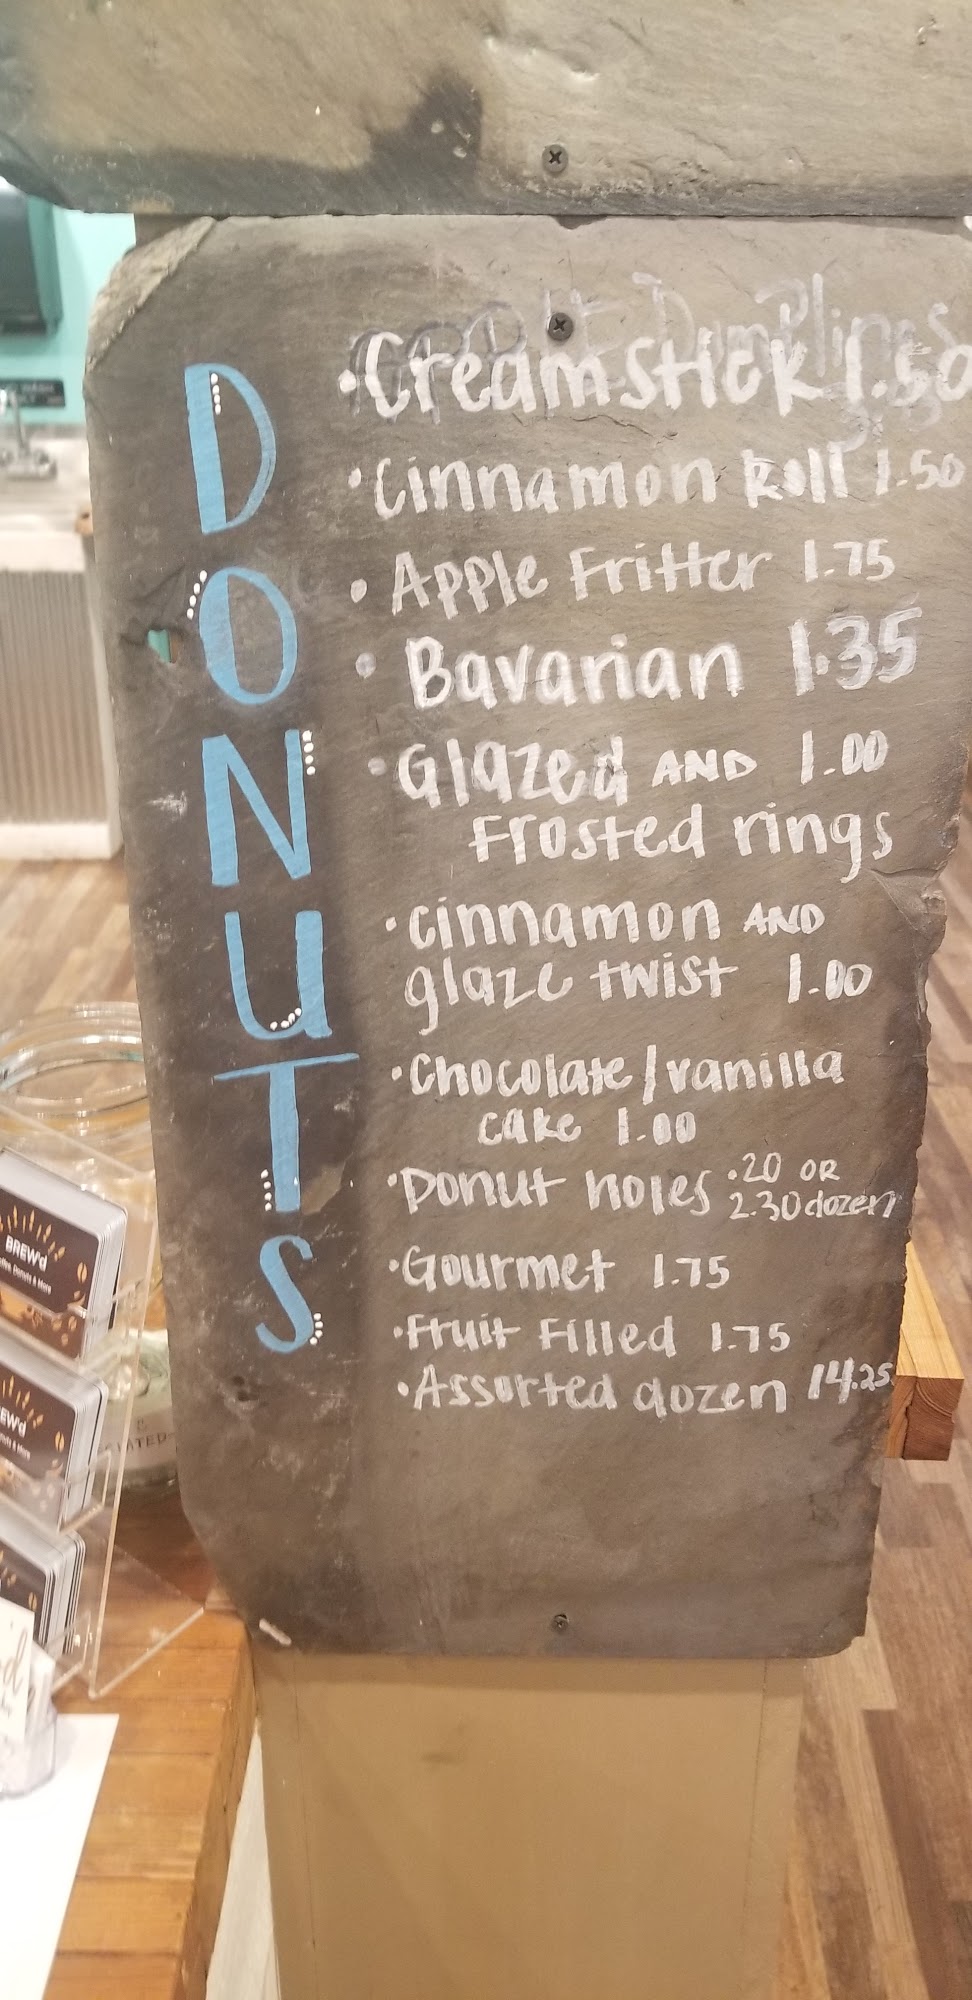 DONUTS
Dumplings
• Creamstick 1.50
• Cinnamon Roll 1.50
• Apple Fritter 1.75
• Bavarian 1.35
• Glazed AND 1.00
Frosted rings
• cinnamon AND
glaze twist 1.00
• Chocolate/vanilla
cake 1.00
• Donut holes .20 OR
2.30 dozen
• Gourmet 1.75
• Fruit Filled 1.75
• Assorted dozen 14.25
BREW'd
Donuts & More